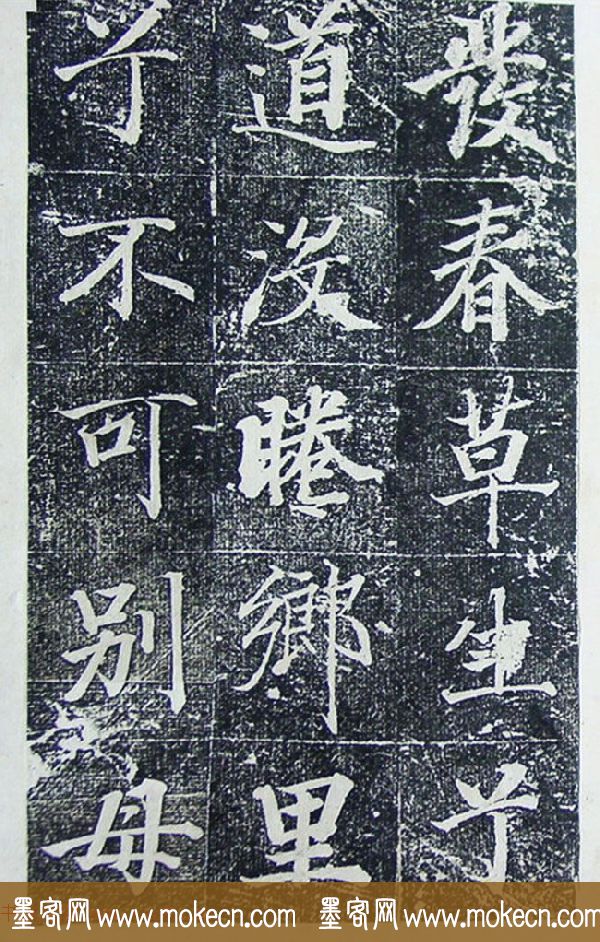 發春草生兮
道没睠鄉里
兮不可别母
墨客网 www.mokecn.com 墨客网 www.mokecn.com